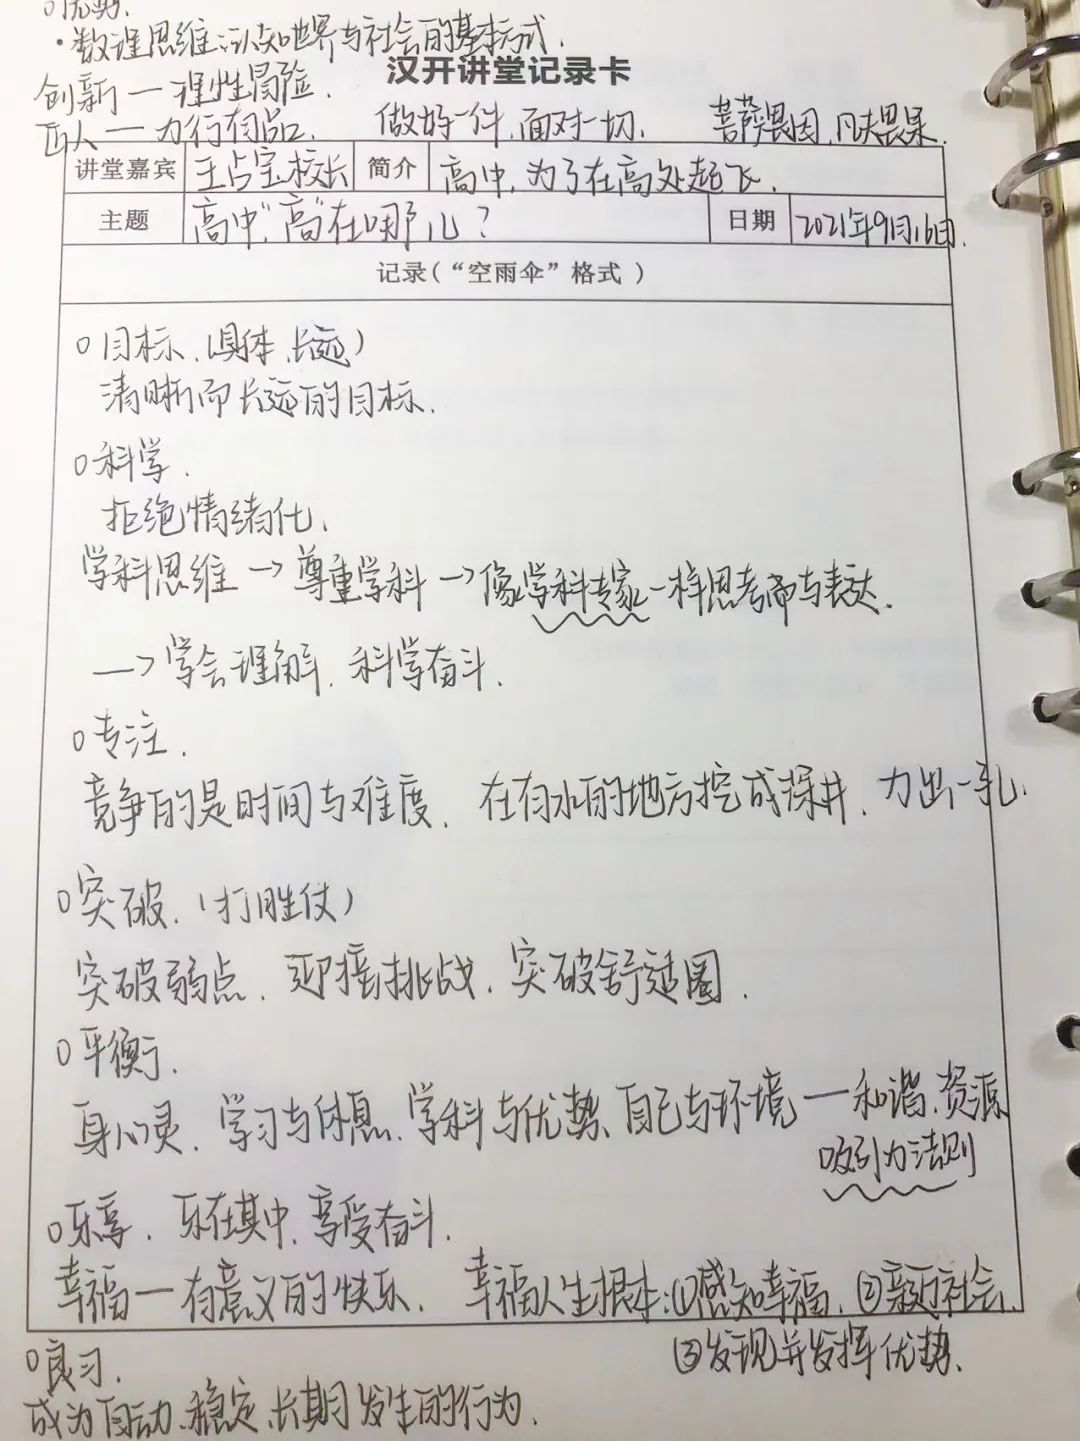 ○优势.
·数理思维:认知世界与社会的基本方式.
汉开讲堂记录卡
创新—理性冒险.
匠人—力行有品. 做好一件,面对一切. 菩萨畏因,凡夫畏果.
讲堂嘉宾 王占宝校长 简介 高中,为了在高处起飞.
主题 高中,“高”在哪儿? 日期 2021年9月16日.
记录(“空雨伞”格式)
○目标.(具体、长远)
清晰而长远的目标.
○科学.
拒绝情绪化.
学科思维→尊重学科→像学科专家一样思考与表达.
→学会理解,科学奋斗.
○专注.
竞争的是时间与难度. 在有水的地方挖成深井,力出一孔.
○突破.(打胜仗)
突破弱点、迎接挑战、突破舒适圈.
○平衡.
身心灵、学习与休息、学科与优势、自己与环境—和谐、资源
吸引力法则
○乐享. 乐在其中、享受奋斗.
幸福—有意义的快乐. 幸福人生根本:①感知幸福.②亲社会.
③发现并发挥优势.
○良习.
成为自动、稳定、长期发生的行为.